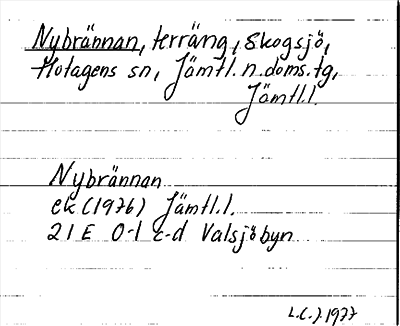 Nybrännan, terräng, Skogsjö,
Hotagens sn, Jämtl.n.doms.tg,
Jämtl.l.
Nybrännan
ek (1976) Jämtl.l.
21 E 0-1 c-d Valsjöbyn
L.C.J. 1977